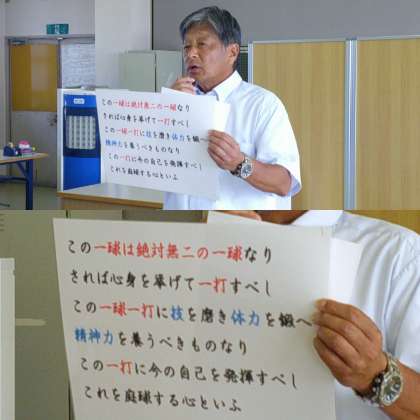 この一球は絶対無二の一球なり
されば心身を挙げて一打すべし
この一球一打に技を磨き体力を鍛へ
精神力を養うべきものなり
この一打に今の自己を発揮すべし
これを庭球する心といふ
この一球は絶対無二の一球なり
されば心身を挙げて一打すべし
この一球一打に技を磨き体力を鍛へ
精神力を養うべきものなり
この一打に今の自己を発揮すべし
これを庭球する心といふ